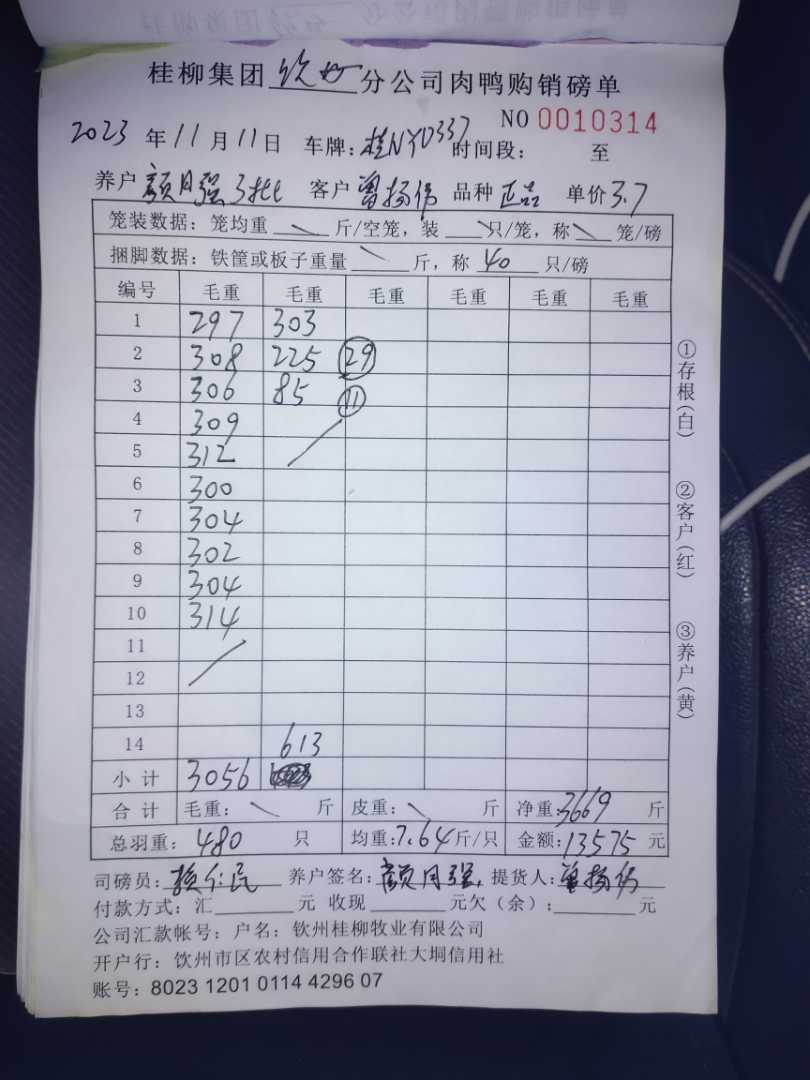 桂柳集团钦州分公司肉鸭购销磅单
NO 0010314
2023年11月11日 车牌:桂NYD337 时间段: 至
养户 颜月强3批 客户 曾扬伟 品种 正品 单价3.7
笼装数据:笼均重 \ 斤/空笼,装 \ 只/笼,称 \ 笼/磅
捆脚数据:铁筐或板子重量 \ 斤,称 40 只/磅
编号 毛重 毛重 毛重 毛重 毛重 毛重
1 297 303
2 308 225 29
3 306 85 11
4 309
5 312
6 300
7 304
8 302
9 304
10 314
11
12
13
14 613
小计 3056
合计 毛重: \ 斤 皮重: \ 斤 净重:3669 斤
总羽重: 480 只 均重:7.64斤/只 金额:13575元
司磅员: 养户签名:颜月强 提货人:曾扬伟
付款方式:汇 元 收现 元欠(余): 元
公司汇款帐号:户名:钦州桂柳牧业有限公司
开户行:饮州市区农村信用合作联社大垌信用社
账号:8023 1201 0114 4296 07
①存根(白)
②客户(红)
③养户(黄)